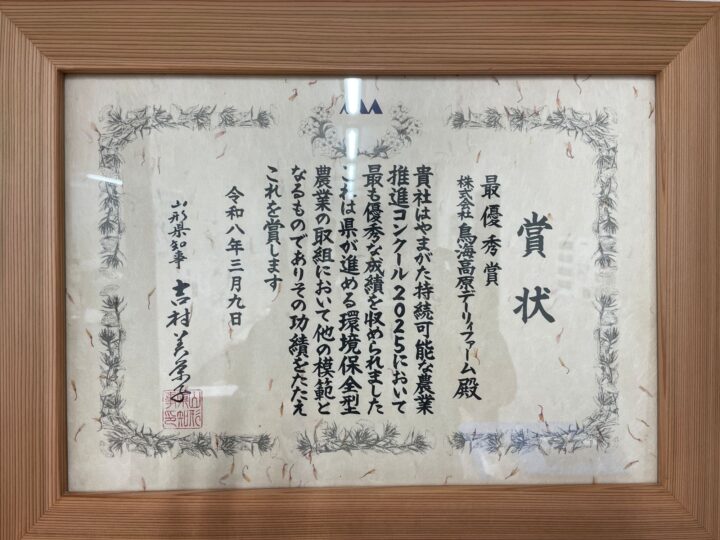 賞状
最優秀賞
株式会社 鳥海高原デーリィファーム 殿
貴社はやまがた持続可能な農業
推進コンクール2025において
最も優秀な成績を収められました
これは県が進める環境保全型
農業の取組において他の模範と
なるものでありその功績をたたえ
これを賞します
令和八年三月九日
山形県知事 吉村美栄子